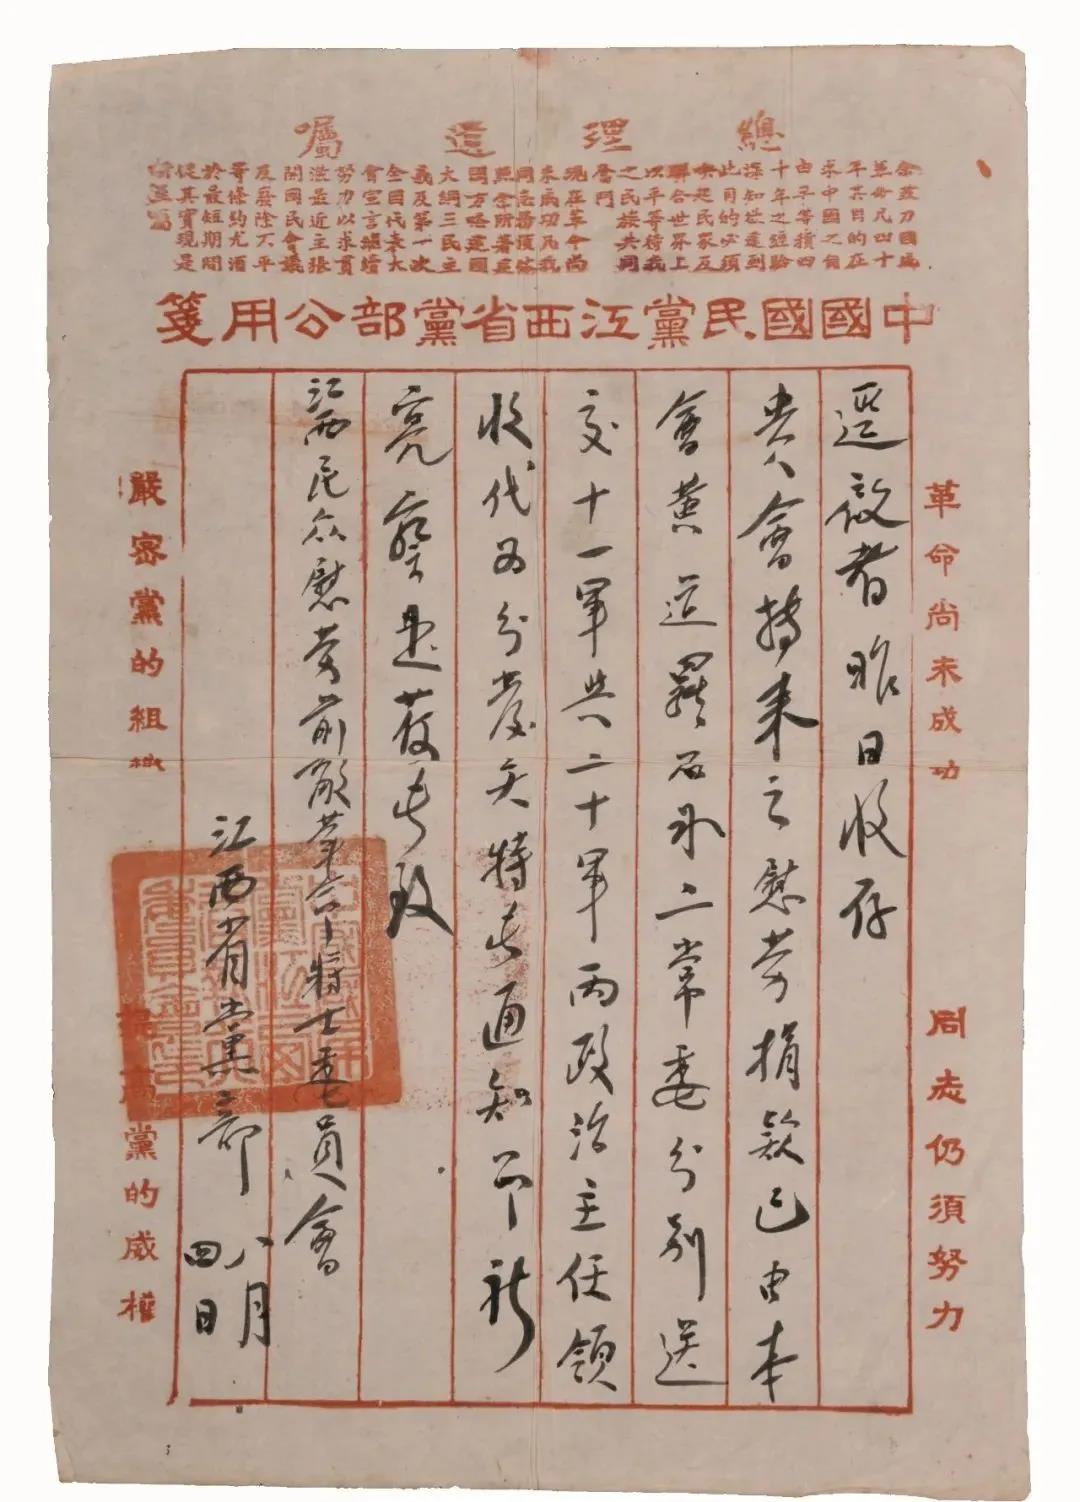 總理遺囑
余致力國民
革命凡四十
年其目的在
求中國之自
由平等積四
十年之經驗
深知欲達到
此目的必須
喚起民衆及
聯合世界上
以平等待我
之民族共同
奮鬥
現在革命尚
未成功凡我
同志務須依
照余所著建
國方略建國
大綱三民主
義及第一次
全國代表大
會宣言繼續
努力以求貫
澈最近主張
開國民會議
及廢除不平
等條約尤須
於最短期間
促其實現是
所至囑
中國國民黨江西省黨部公用箋
革命尚未成功
同志仍須努力
逕啟者昨日收存
貴會轉來之慰勞捐款已由本
會黃道羅石冰二常委分別送
交十一軍與二十軍兩政治主任領
收代为分發矣特此通知即祈
亮詧是荷此致
江西民众慰劳前敵革命將士委員會
江西省黨部
八月
四日
嚴密黨的組織
提高黨的威權